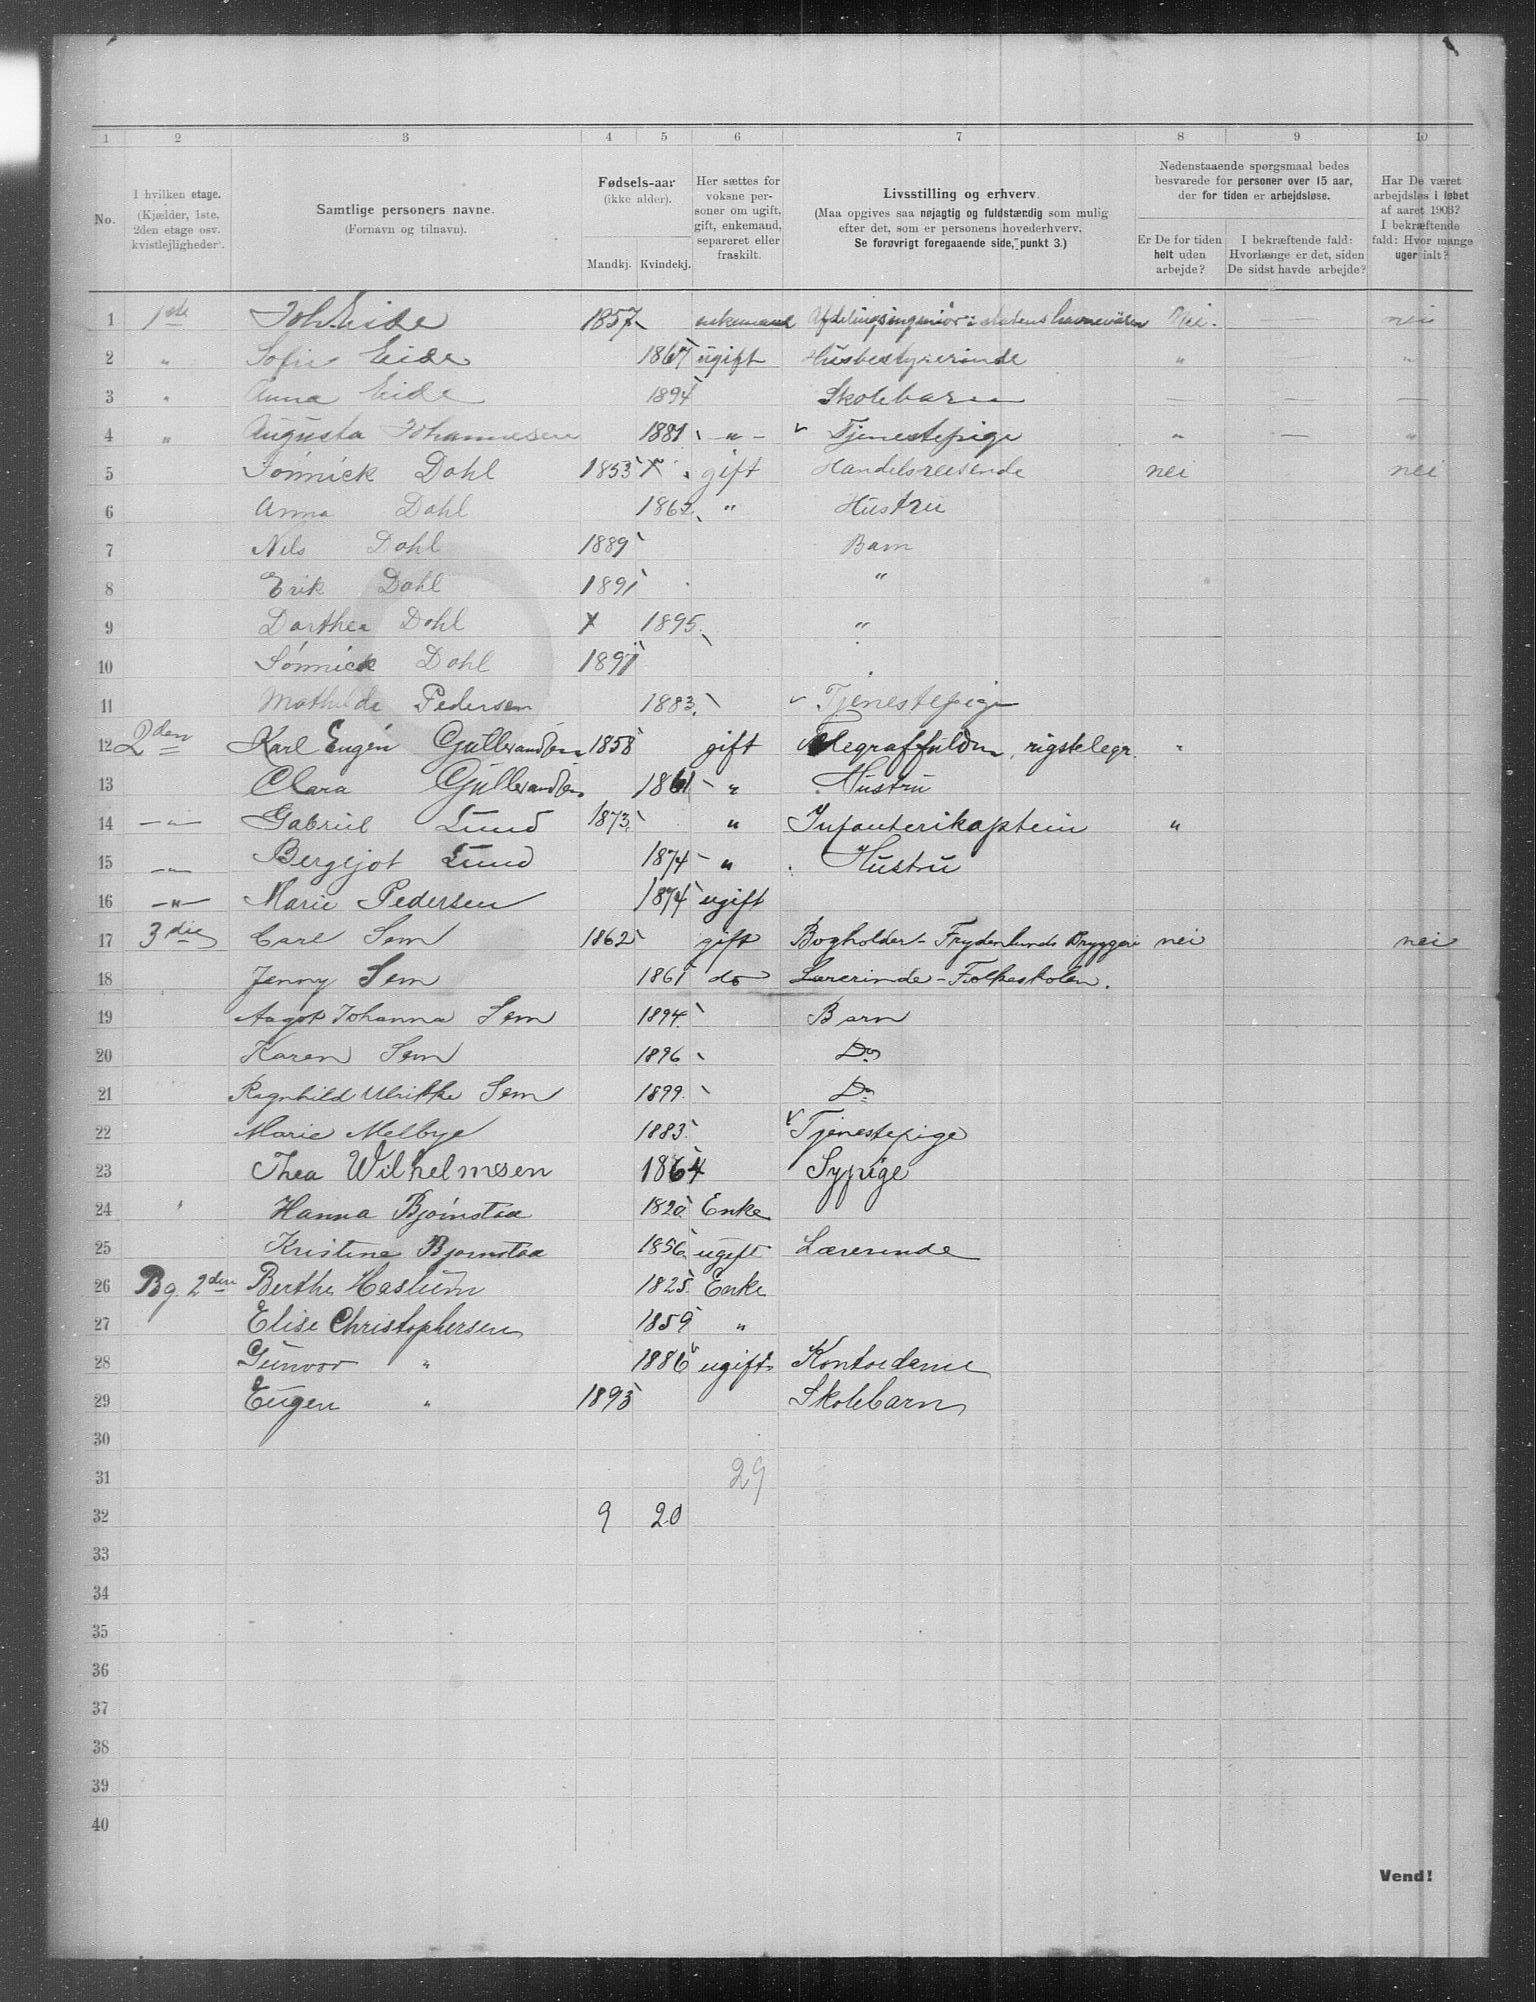 1 2 3 4 5 6 7 8 9 10
No.
I hvilken etage.
(Kjælder, 1ste, 2den etage osv. kvistlejligheder).
Samtlige personers navne.
(Fornavn og tilnavn).
Fødsels-aar
(ikke alder).
Mandkj. Kvindekj.
Her sættes for voksne personer om ugift, gift, enkemand, separeret eller fraskilt.
Livsstilling og erhverv.
(Maa opgives saa nøjagtig og fuldstændig som mulig efter det, som er personens hovederhverv.
Se forøvrigt foregaaende side, punkt 3.)
Nedenstaaende spørgsmaal bedes besvarede for personer over 15 aar, der for tiden er arbejdsløse.
Er De for tiden helt uden arbejde?
I bekræftende fald: Hvorlænge er det, siden De sidst havde arbejde?
Har De været arbejdsløs i løbet af aaret 1903? I bekræftende fald: Hvor mange uger ialt?
1 1ste Joh Eide 1857 enkemand Afdelingsingeniør i statens havnevæsen Nei. nei
2 " Sofie Eide 1867 ugift Husbestyrerinde " "
3 " Anna Eide 1894 Skolebarn — — —
4 " Augusta Johannesen 1881 - " - Tjenestepige " — "
5 Sönnick Dahl 1853 gift Handelsreisende nei nei
6 Anna Dahl 1862 " Hustru
7 Nils Dahl 1889 Barn
8 Erik Dahl 1891 "
9 Dorthea Dahl 1895 "
10 Sönnick Dahl 1897
11 Mathilde Pedersen 1883 Tjenestepige
12 2den Karl Eugén Gulbrandsen 1858 gift Telegraffuldm. rigstelegr. "
13 Clara Gulbrandsen 1861 " Hustru
14 — " — Gabriel Lund 1873 " Infanterikaptein "
15 — " — Bergljot Lund 1874 " Hustru
16 — " — Marie Pedersen 1874 ugift
17 3die Carl Sem 1862 gift Bogholder - Frydenlunds Bryggeri nei nei
18 Jenny Sem 1861 do Lærerinde - Folkeskolen.
19 Aagot Johanna Sem 1894 Barn
20 Karen Sem 1896 Do
21 Ragnhild Ulrikke Sem 1899 Do
22 Marie Melbye 1883 Tjenestepige
23 Thea Wilhelmsen 1864 Sypige
24 Hanna Bjørnstad 1820 Enke
25 Kristine Bjørnstad 1856 ugift Lærerinde
26 Bg. 2den Berthe Haslum 1825 Enke
27 Elise Christophersen 1859 "
28 Gunvor " 1886 ugift Kontordame
29 Eugen " 1893 Skolebarn
30
31 29
32 9 20
33
34
35
36
37
38
39
40
Vend!